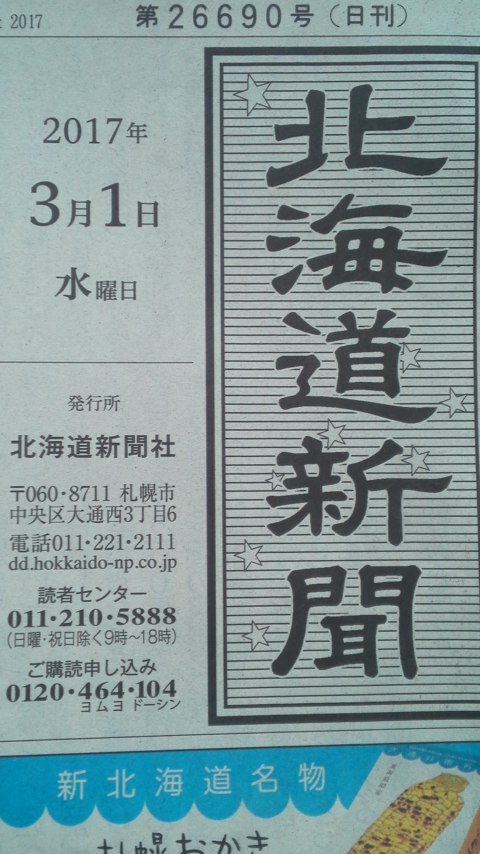 2017
第26690号（日刊）
北海道新聞
2017年
3月1日
水曜日
発行所
北海道新聞社
〒060・8711 札幌市
中央区大通西3丁目6
電話011・221・2111
dd.hokkaido-np.co.jp
読者センター
011・210・5888
（日曜・祝日除く9時〜18時）
ご購読申し込み
0120・464・104
ヨムヨ ドーシン
新北海道名物
札幌おかき